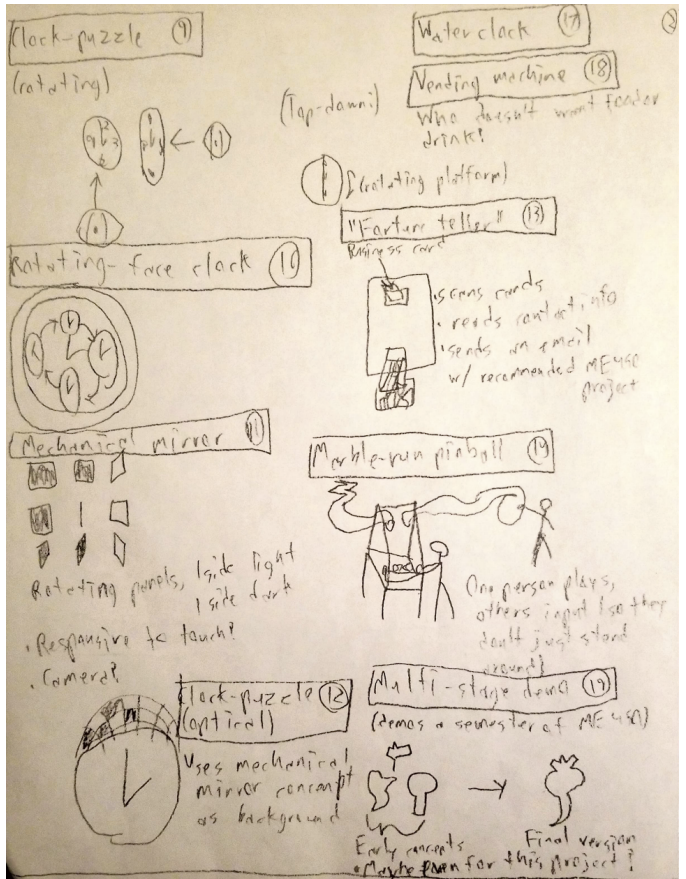 Clock-puzzle 9
(rotating)
Rotating-face clock 10
Mechanical mirror 11
Rotating panels, 1 side light
1 side dark
• Responsive to touch?
• Camera?
Clock-puzzle 12
(optical)
Uses mechanical
mirror concept
as background
2
Water clock 17
Vending machine 18
Who doesn't want food or
drink?
(Top-down:)
(rotating platform)
13
Business card
• scans cards
• reads contact info
• sends an email
w/ recommended ME450
project
Marble-run pinball 14
One person plays,
others input (so they
don't just stand
around)
Multi-stage demo 19
(demos a semester of ME450)
Early concepts
Final version
• Maybe even for this project?